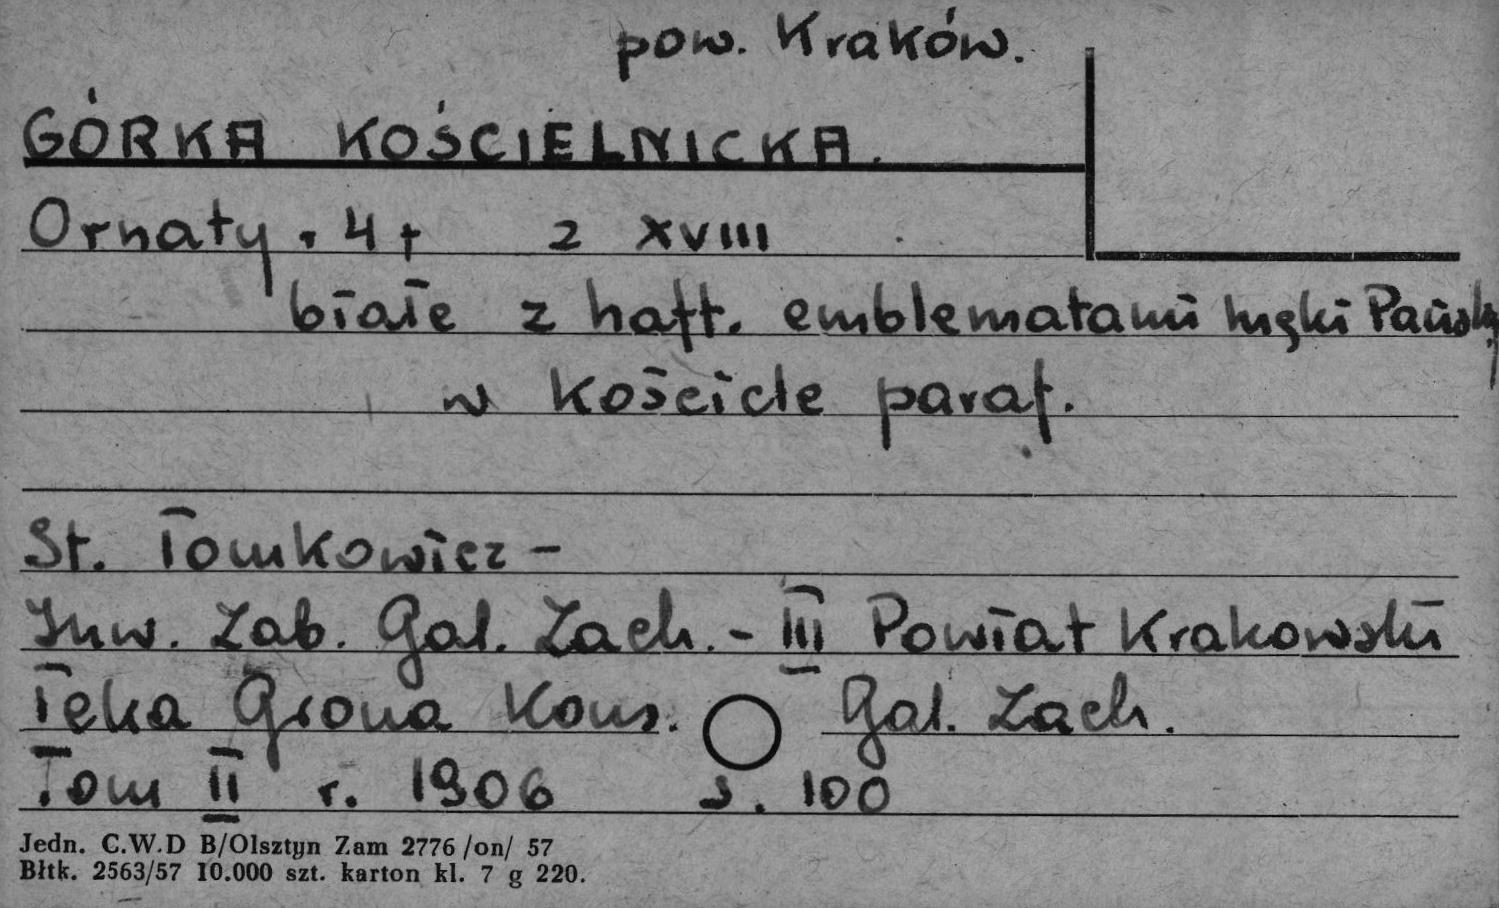 pow. Kraków.
GÓRKA KOŚCIELNICKA.
Ornaty. 4 z XVIII
białe z haft. emblematami męki Pańsk.
w kościele paraf.
St. Tomkowicz -
Inw. Zab. Gal. Zach. - III Powiat Krakowski
Teka Grona Kons. Gal. Zach.
Tom II r. 1906 s. 100
Jedn. C.W.D B/Olsztyn Zam 2776 /on/ 57
Błtk. 2563/57 10.000 szt. karton kl. 7 g 220.